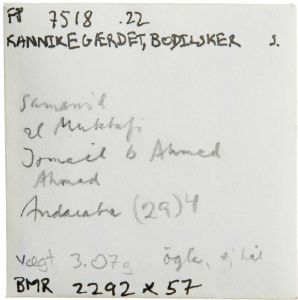 FP 7518 .22
KANNIKEGÆRDET, BODILSKER S.
Samanid
al Muktafi
Ismail b Ahmed
Ahmad
Andaraba (29)4
Vægt 3.07g øgle, ej hål
BMR 2292 x 57